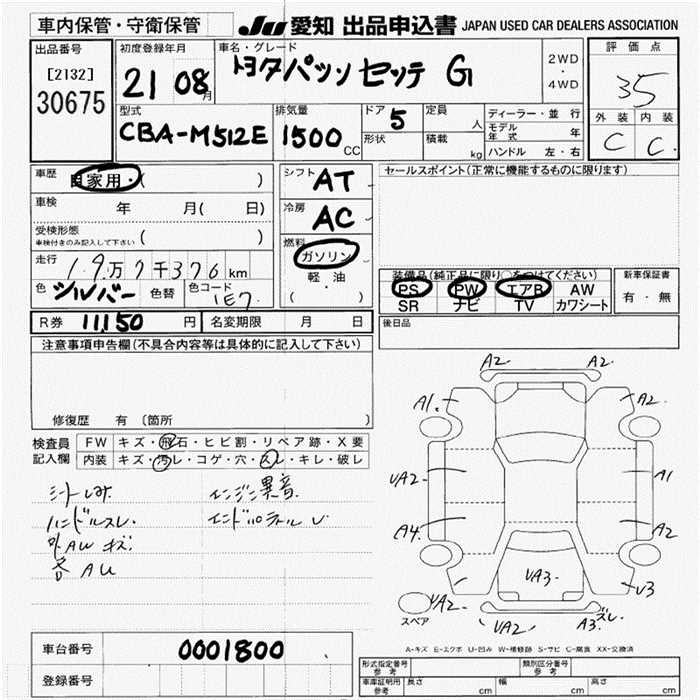 車内保管・守衛保管
JU 愛知 出品申込書 JAPAN USED CAR DEALERS ASSOCIATION
出品番号
[2132]
30675
初度登録年月
21 08月
車名・グレード
トヨタパッソセッテ G
2WD
・
4WD
評価点
35
外装 内装
C C
型式
CBA-M512E
排気量
1500 CC
ドア 5
形状
定員 人
積載 kg
ディーラー・並行
モデル年式 年
ハンドル 左・右
車歴
自家用・( )
車検 年 月( 日)
受検形態
車検付きのみ記入して下さい ( )
走行
1.9万7千376 km
色 シルバー 色替 色コード 1E7
シフト AT
冷房 AC
燃料
ガソリン
軽・油
( )
セールスポイント(正常に機能するものに限ります)
装備品(純正品に限り○をつけてください)
PS PW エアB AW
SR ナビ TV カワシート
新車保証書
有・無
R券 11,150 円 名変期限 月 日
後日品
注意事項申告欄(不具合内容等は具体的に記入して下さい)
修復歴 有 〔箇所
検査員記入欄
FW キズ・飛石・ヒビ割・リペア跡・X要
内装 キズ・汚レ・コゲ・穴・スレ・キレ・破レ
シートしみ
ハンドルスレ
外AWキズ
各AU
エンジン異音
インドパネル U
A2
A2
A1
A2
UA2
A1
A4
A2
UA3
UA2
U3
UA2
A3 ズレ
スペア
A-キズ E-エクボ U-凹み W-補修跡 S-サビ C-腐食 XX-交換済
車台番号 0001800
登録番号
形式指定番号 参考
類別区分番号 参考
車庫証明用 参考 長さ cm 幅 cm 高さ cm